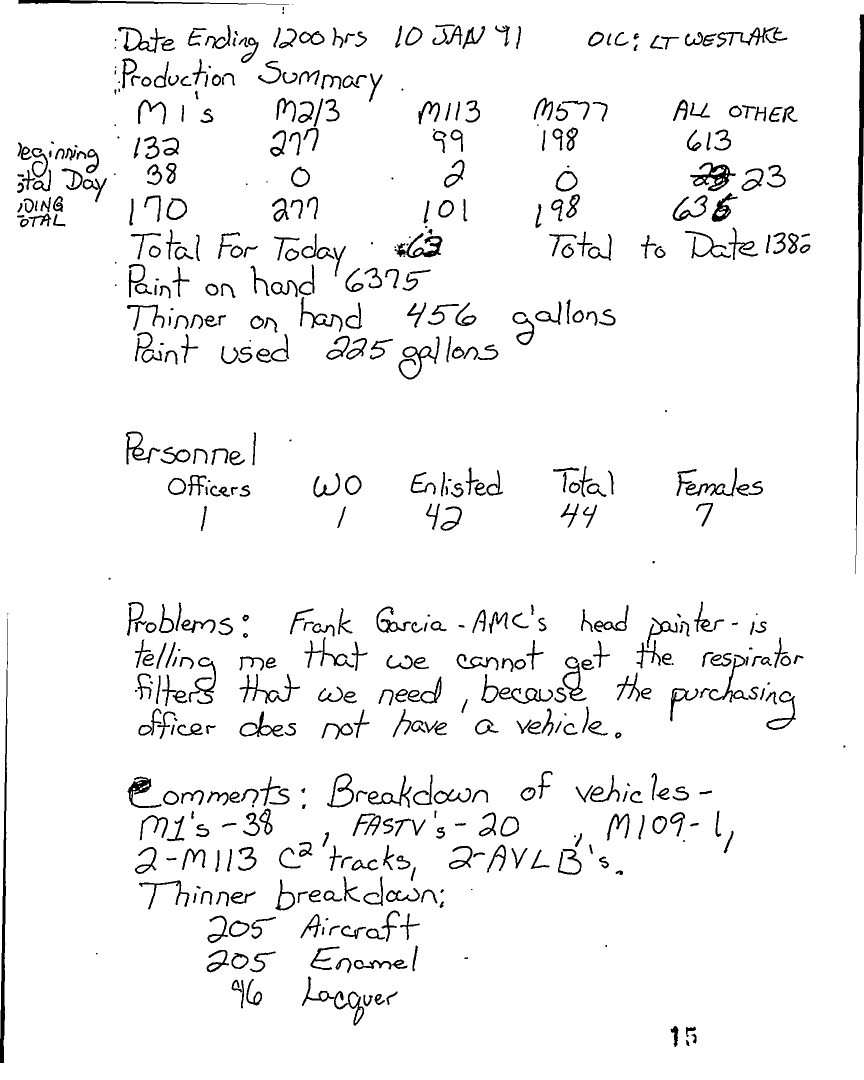 Date Ending 1200 hrs 10 JAN 91 OIC: LT WESTLAKE
Production Summary
M1's M2/3 M113 M577 ALL OTHER
eginning 132 277 99 198 613
otal Day 38 0 2 0 23
DING OTAL 170 277 101 198 636
Total For Today 63 Total to Date 1380
Paint on hand 6375
Thinner on hand 456 gallons
Paint used 225 gallons
Personnel
Officers WO Enlisted Total Females
1 1 42 44 7
Problems: Frank Garcia - AMC's head painter - is
telling me that we cannot get the respirator
filters that we need, because the purchasing
officer does not have a vehicle.
Comments: Breakdown of vehicles -
M1's - 38, FASTV's - 20, M109 - 1,
2 - M113 C² tracks, 2 - AVLB's.
Thinner breakdown:
205 Aircraft
205 Enamel
46 Lacquer
15